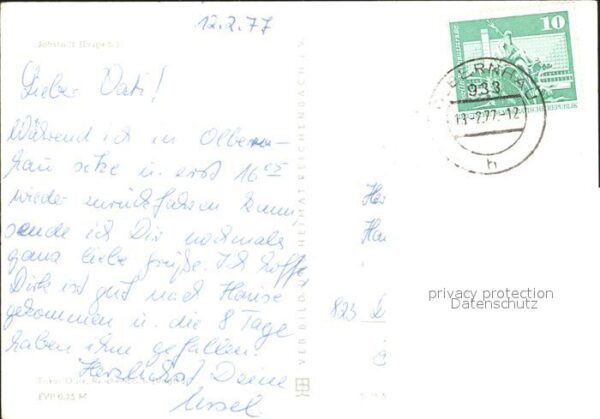 12.2.77
Jöhstadt (Erzgeb.)
Lieber Vati!
Während ich in Olbern-
hau sitze u. erst 16 05
wieder zurückfahren kann,
sende ich Dir nochmals
ganz liebe Grüße. Ich hoffe,
Dirk ist gut nach Hause
gekommen u. die 8 Tage
haben ihm gefallen.
Herzlichst Deine
Ursel
EVP 0,25 M
VEB BILD HEIMAT REICHENBACH i. V.
10
DEUTSCHE DEMOKRATISCHE REPUBLIK
OLBERNHAU
933
13.-2.77.-12
h
823
privacy protection
Datenschutz